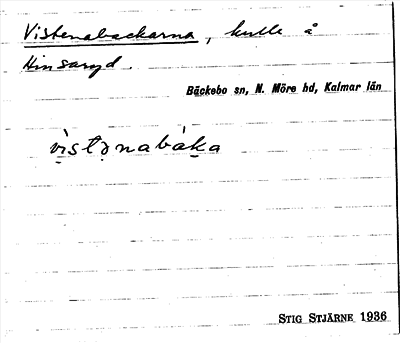 Vistenabackarna, kulle å
Hinsaryd.
Bäckebo sn, N. Möre hd, Kalmar län
vìstənabàka
STIG STJÄRNE 1936